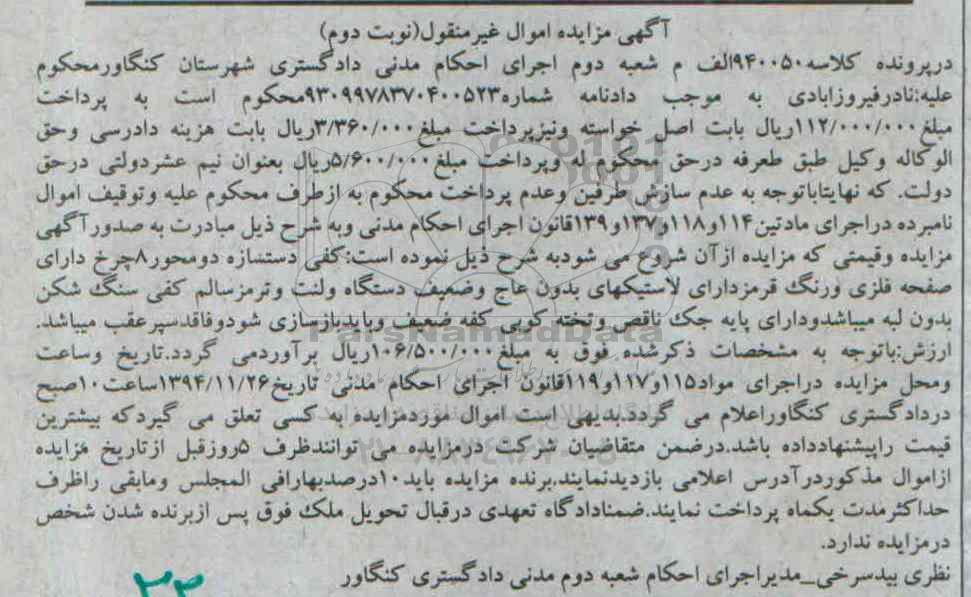 آگهی مزایده اموال غیرمنقول(نوبت دوم)
درپرونده کلاسه۹۴۰۰۵۰الف م شعبه دوم اجرای احکام مدنی دادگستری شهرستان کنگاورمحکوم
علیه:نادرفیروزابادی به موجب دادنامه شماره۹۳۰۹۹۷۸۳۷۰۴۰۰۵۲۳محکوم است به پرداخت
مبلغ۱۱۲/۰۰۰/۰۰۰ریال بابت اصل خواسته ونیزپرداخت مبلغ۳/۳۶۰/۰۰۰ریال بابت هزینه دادرسی وحق
الوکاله وکیل طبق طعرفه درحق محکوم له وپرداخت مبلغ۵/۶۰۰/۰۰۰ریال بعنوان نیم عشردولتی درحق
دولت. که نهایتاباتوجه به عدم سازش طرفین وعدم پرداخت محکوم به ازطرف محکوم علیه وتوقیف اموال
نامبرده دراجرای مادتین۱۱۴و۱۱۸و۱۳۷و۱۳۹قانون اجرای احکام مدنی وبه شرح ذیل مبادرت به صدورآگهی
مزایده وقیمتی که مزایده ازآن شروع می شودبه شرح ذیل نموده است:کفی دستسازه دومحور۸چرخ دارای
صفحه فلزی ورنگ قرمزدارای لاستیکهای بدون عاج وضعیف دستگاه ولنت وترمزسالم کفی سنگ شکن
بدون لبه میباشدودارای پایه جک ناقص وتخته کوبی کفه ضعیف وبایدبازسازی شودوفاقدسپرعقب میباشد.
ParsNamadData
ارزش:باتوجه به مشخصات ذکرشده فوق به مبلغ۱۰۶/۵۰۰/۰۰۰ریال برآوردمی گردد.تاریخ وساعت
ومحل مزایده دراجرای مواد۱۱۵و۱۱۷و۱۱۹قانون اجرای احکام مدنی تاریخ۱۳۹۴/۱۱/۲۶ساعت۱۰صبح
دردادگستری کنگاوراعلام می گردد.بدیهی است اموال موردمزایده به کسی تعلق می گیردکه بیشترین
قیمت راپیشنهادداده باشد.درضمن متقاضیان شرکت درمزایده می توانندظرف ۵روزقبل ازتاریخ مزایده
ازاموال مذکوردرآدرس اعلامی بازدیدنمایند.برنده مزایده باید۱۰درصدبهارافی المجلس ومابقی راظرف
حداکثرمدت یکماه پرداخت نمایند.ضمنادادگاه تعهدی درقبال تحویل ملک فوق پس ازبرنده شدن شخص
درمزایده ندارد.
نظری بیدسرخی_مدیراجرای احکام شعبه دوم مدنی دادگستری کنگاور